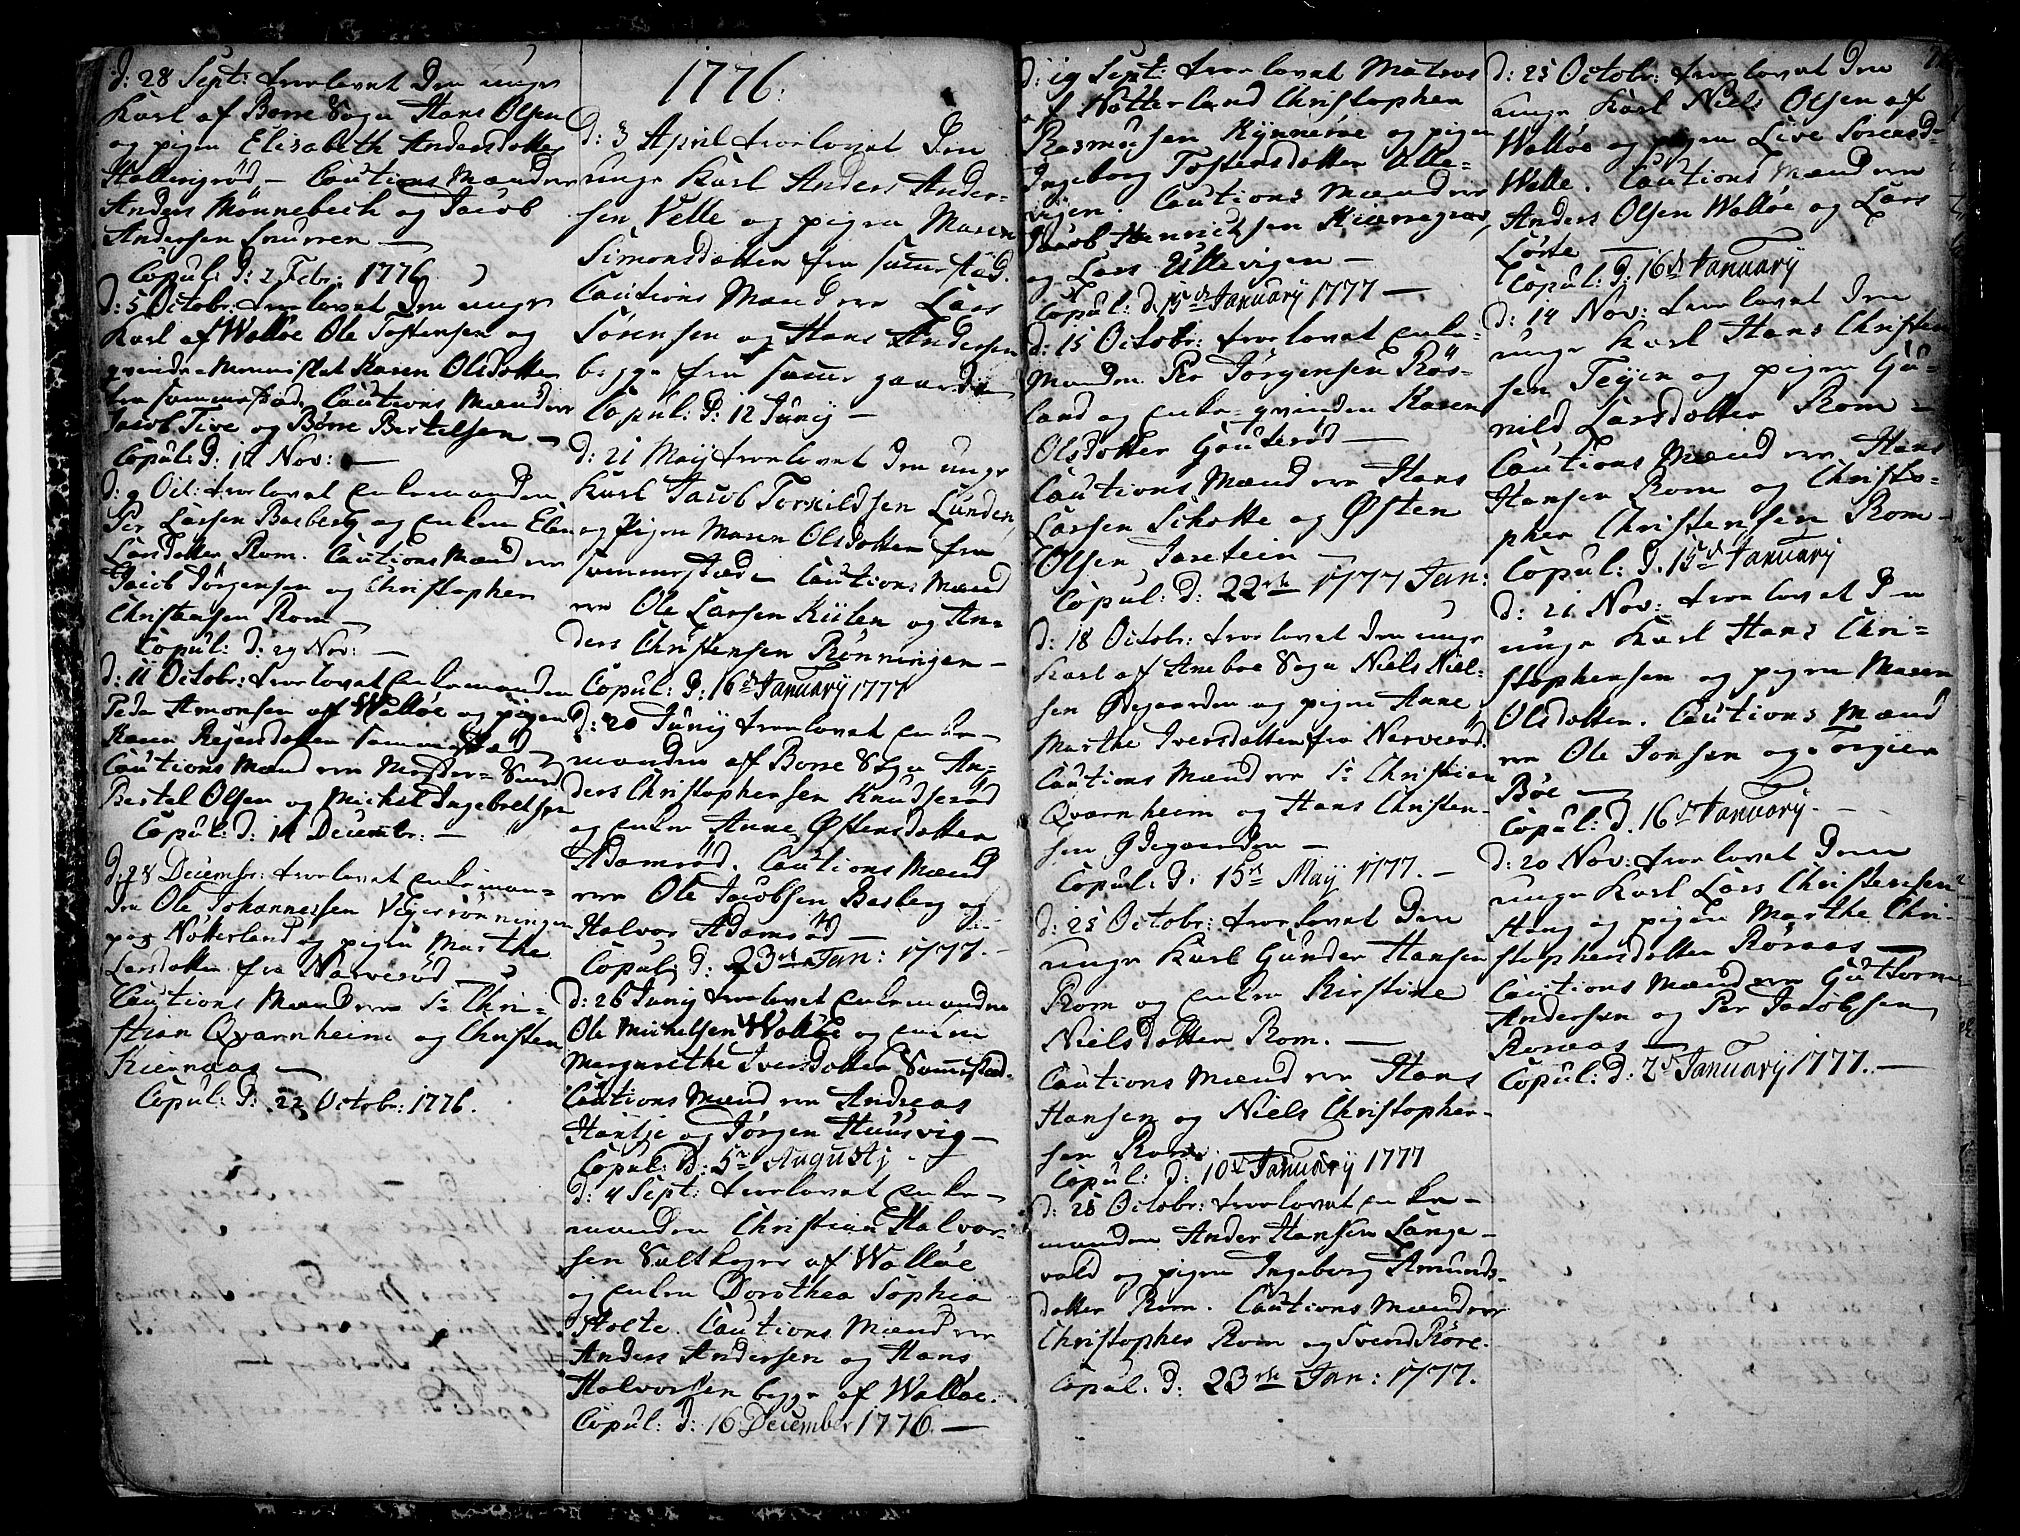 d: 28 Sept: trorlovet den unge
Karl af Borre Sogn Hans Olsen
og pigen Elisabeth Andersdotter
Hallingrød — Cautions Mænd ere
Anders Mönnebech og Jacob
Andersen Snurren —
Copul: d: 2 Febr: 1776
d: 5 Octobr: trorlovet den unge
Karl af Walløe Ole Tostensen og
qvinde-Mennisket Karen Olsdotter
fra Sammestæd. Cautions Mænd ere
Jacob Tive og Børre Bertelsen —
Copul: d: 11 Nov: —
d: 9 Oct: trorlovet Enkemanden
Per Larsen Basberg og Enken Elen
Larsdotter Rom. Cautions Mænd ere
Jacob Jörgensen og Christopher
Christensen Rom —
Copul: d: 29 Nov: —
d: 11 Octobr: trorlovet Enkemanden
Peder Amonsen af Walløe og pigen
Karen Rejersdotter Sammestæd
Cautions Mænd ere Mester-Smed
Bertel Olsen og Michel Ingebretsen
Copul: d: 14 Decembr: —
d: 28 Decembr: trorlovet Enkeman=
den Ole Johannessen Vejerrönningen
paa Nötterland og pigen Marthe
Larsdotter fra Narverød —
Cautions Mænd ere Sr Chri=
stian Qvarnheim og Christen
Kiernaas —
Copul: d: 22 Octobr: 1776.
1776:
d: 3 April trorlovet den
unge Karl Anders Ander=
sen Velle og pigen Maren
Simonsdotter fra samme stæd.
Cautions Mænd ere Lars
Sörensen og Hans Andersen
begge fra samme gaard
Copul: d: 12 Junij —
d: 21 Maij trorlovet den unge
Karl Jacob Torkildsen Lunden
og Pigen Maren Olsdotter fra
sammestæde Cautions Mænd
ere Ole Larsen Kiilen og An=
ders Christensen Rönningen —
Copul: d: 16de Januarij 1777
d: 20 Junij trorlovet Enke-
manden af Borre Sogn An=
ders Christophersen Knudserød
og Enke Anne Østensdotter
Adamrød. Cautions Mænd
ere Ole Jacobsen Basberg og
Halvor Adamrød —
Copul: d: 23de Jan: 1777. —
d: 26 Junij trorlovet Enkemanden
Ole Michelsen Walløe og Enken
Margarethe Iversdotter Sammestæd.
Cautions Mænd ere Andreas
Hantje og Jörgen Huusvig —
Copul: d: 5te Augustj
d: 4 Sept: trorlovet Enke=
manden Christian Halvor=
sen Saltkoger af Walløe
og Enke Dorothea Sophia
Holte. Cautions Mænd ere
Anders Andersen og Hans
Halvorsen begge af Walløe.
Copul: d: 16 December 1776. —
d: 19 Sept: trorlovet Matros
af Nötterland Christopher
Rasmusen Kynneröe og pigen
Ingeborg Tostensdotter Ulle=
vigen. Cautions Mænd ere
Jacob Henrichsen Kiernaaes
og Lars Ullevigen —
Copul: d. 15de Januarij 1777 —
d: 15 Octobr: trorlovet Enke=
Manden Per Jörgensen Rös=
land og Enke=qvinden Karen
Olsdotter Gauterød —
Cautions Mænd ere Hans
Larsen Schotte og Østen
Olsen Jarstein —
Copul: d: 22de 1777 Jan:
d: 18 Octobr: trorlovet den unge
Karl af Aneboe Sogn Niels Niel=
sen Ødegaarden og pigen Anne
Marthe Iversdotter fra Narverød.
Cautions Mænd ere Sr Christian
Qvarnheim og Hans Christen=
sen Ødegaarden —
Copul: d. 15de Maij 1777. —
d: 25 Octobr: trorlovet den
unge Karl Gunder Hansen
Rom og Enke Kirstine
Nielsdotter Rom. —
Cautions Mænd ere Hans
Hansen og Niels Christopher=
sen Rom.
Copul: d: 10de Januarij 1777
d: 25 Octobr: trorlovet Enke=
manden Ander Hansen Lange=
vold og pigen Ingeborg Amunds=
dotter Rom. Cautions Mænd ere
Christopher Rom og Svend Röre.
Copul: d: 23de Jan: 1777.
d: 25 Octobr: trorlovet den
unge Karl Niels Olsen af
Walløe og pigen Live Sörensd=
Welle. Cautions Mænd ere
Anders Olsen Walløe og Lars
Lofte
Copul: d. 16de Januarij
d: 14 Nov: trorlovet den
unge Karl Hans Christen
sen Tejen og pigen Gu=
nild Larsdotter Rom —
Cautions Mænd ere Hans
Hansen Rom og Christo=
pher Christensen Rom —
Copul: d. 15de Januarij
d: 21 Nov: trorlovet den
unge Karl Hans Chri=
stophersen og pigen Maren
Olsdotter. Cautions Mænd
ere Ole Jonsen og Torgier
Böe —
Copul: d. 16de Januarij. —
d: 20 Nov: trorlovet den
unge Karl Lars Christensen
Haug og pigen Marthe Chri=
stophersdotter Röraas —
Cautions Mænd ere Guttorm
Andersen og Per Jacobsen
Roraas —
Copul: d: 2de Januarij 1777. —